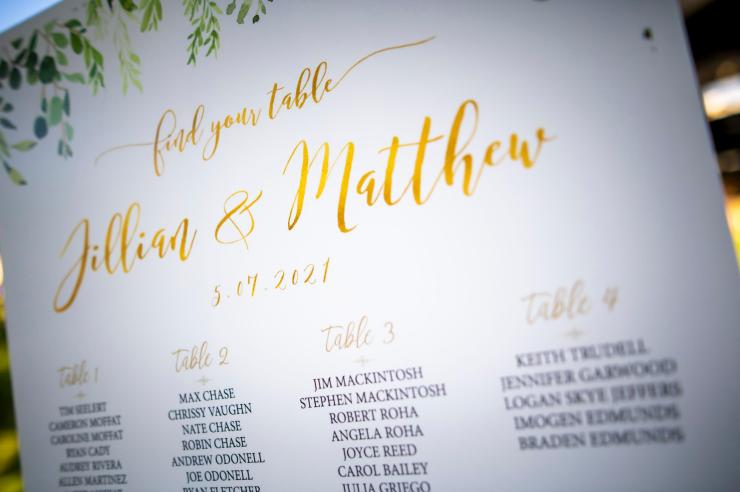 find your table
Jillian & Matthew
5.07.2021
Table 1
TIM SEELERT
CAMERON MOFFAT
CAROLINE MOFFAT
RYAN CADY
AUDREY RIVERA
ALLEN MARTINEZ
MOFFAT
Table 2
MAX CHASE
CHRISSY VAUGHN
NATE CHASE
ROBIN CHASE
ANDREW ODONELL
JOE ODONELL
RYAN FLETCHER
Table 3
JIM MACKINTOSH
STEPHEN MACKINTOSH
ROBERT ROHA
ANGELA ROHA
JOYCE REED
CAROL BAILEY
JULIA GRIEGO
Table 4
KEITH TRUDELL
JENNIFER GARWOOD
LOGAN SKYE JEFFERS
IMOGEN EDMUNDS
BRADEN EDMUNDS